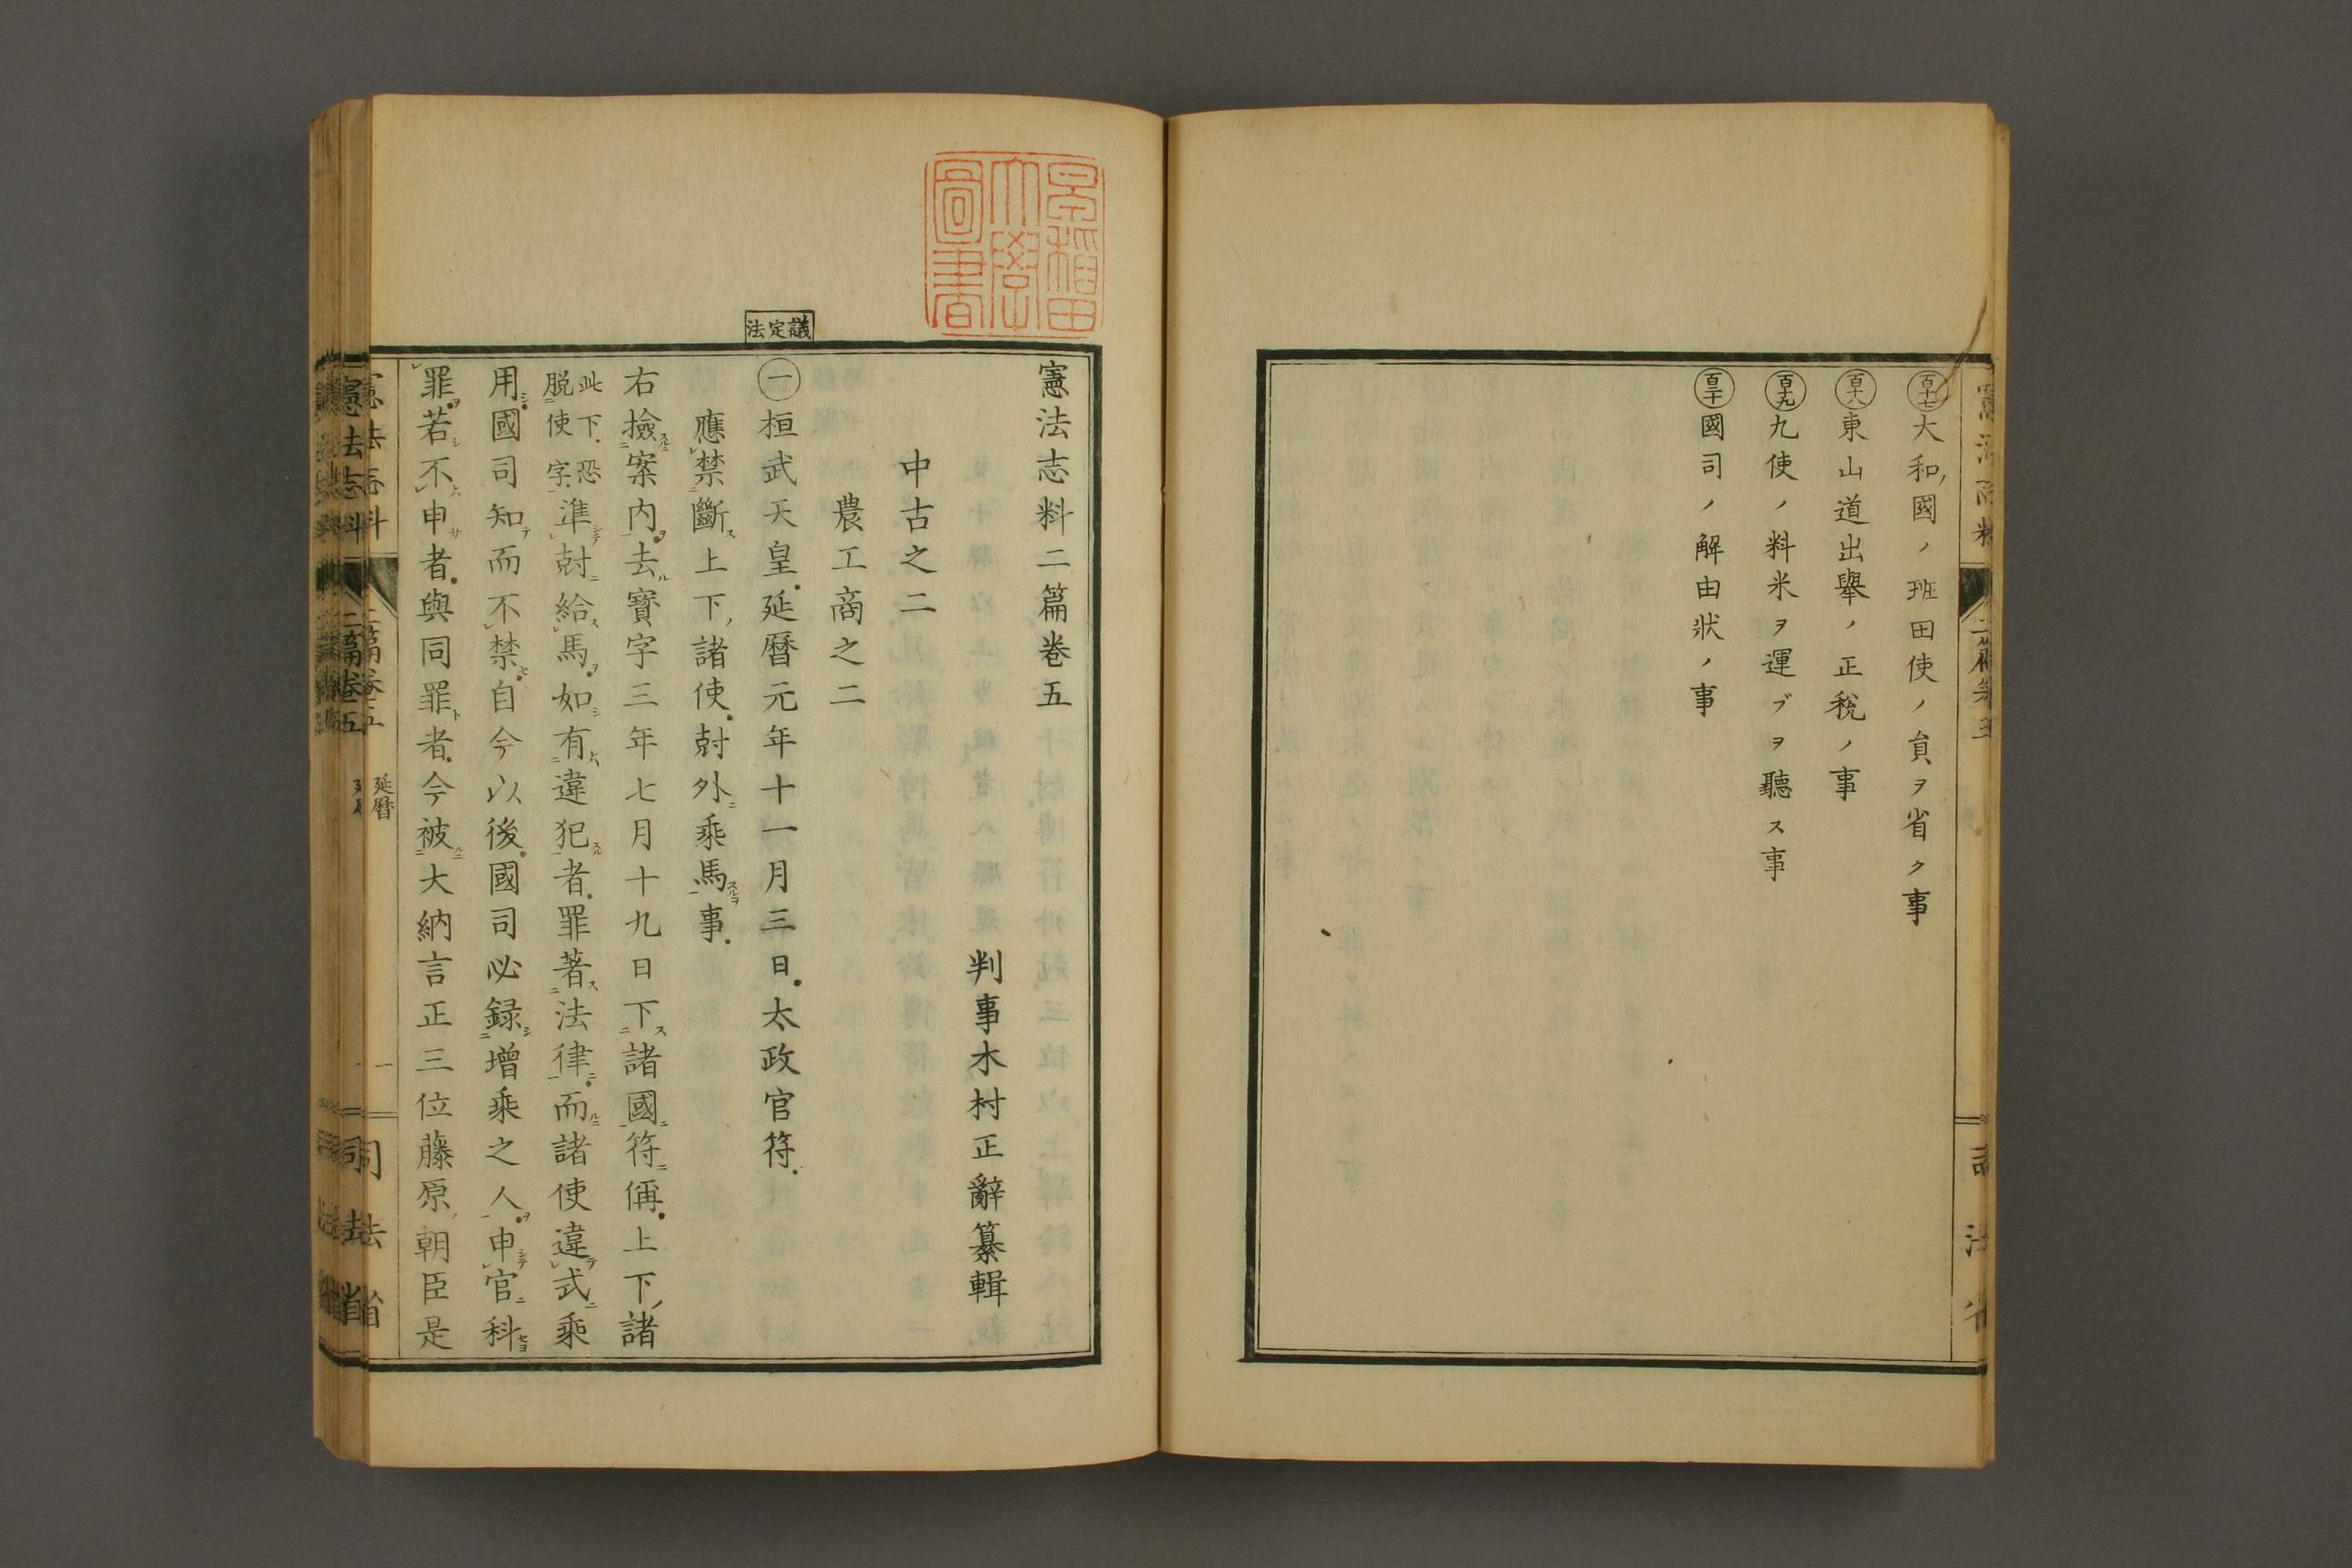 百十七 大和ノ國ノ班田使ノ員ヲ省ク事
百十八 東山道出擧ノ正税ノ事
百十九 九使ノ料米ヲ運ブヲ聽ス事
百二十 國司ノ解由狀ノ事
早稲田大學圖書
憲法志料二篇卷五
判事木村正辭纂輯
中古之二
農工商之二
議定法
一 桓武天皇延曆元年十一月三日太政官符
應禁斷上下諸使尅外乘馬事
右撿案内去寶字三年七月十九日下諸國符偁上下諸
此下恐脱使字準尅給馬如有違犯者罪著法律而諸使違式乘
用國司知而不禁自今以後國司必録增乘之人申官科
罪若不申者與同罪者今被大納言正三位藤原朝臣是
憲法志料 二篇卷五 延曆 一 司法省